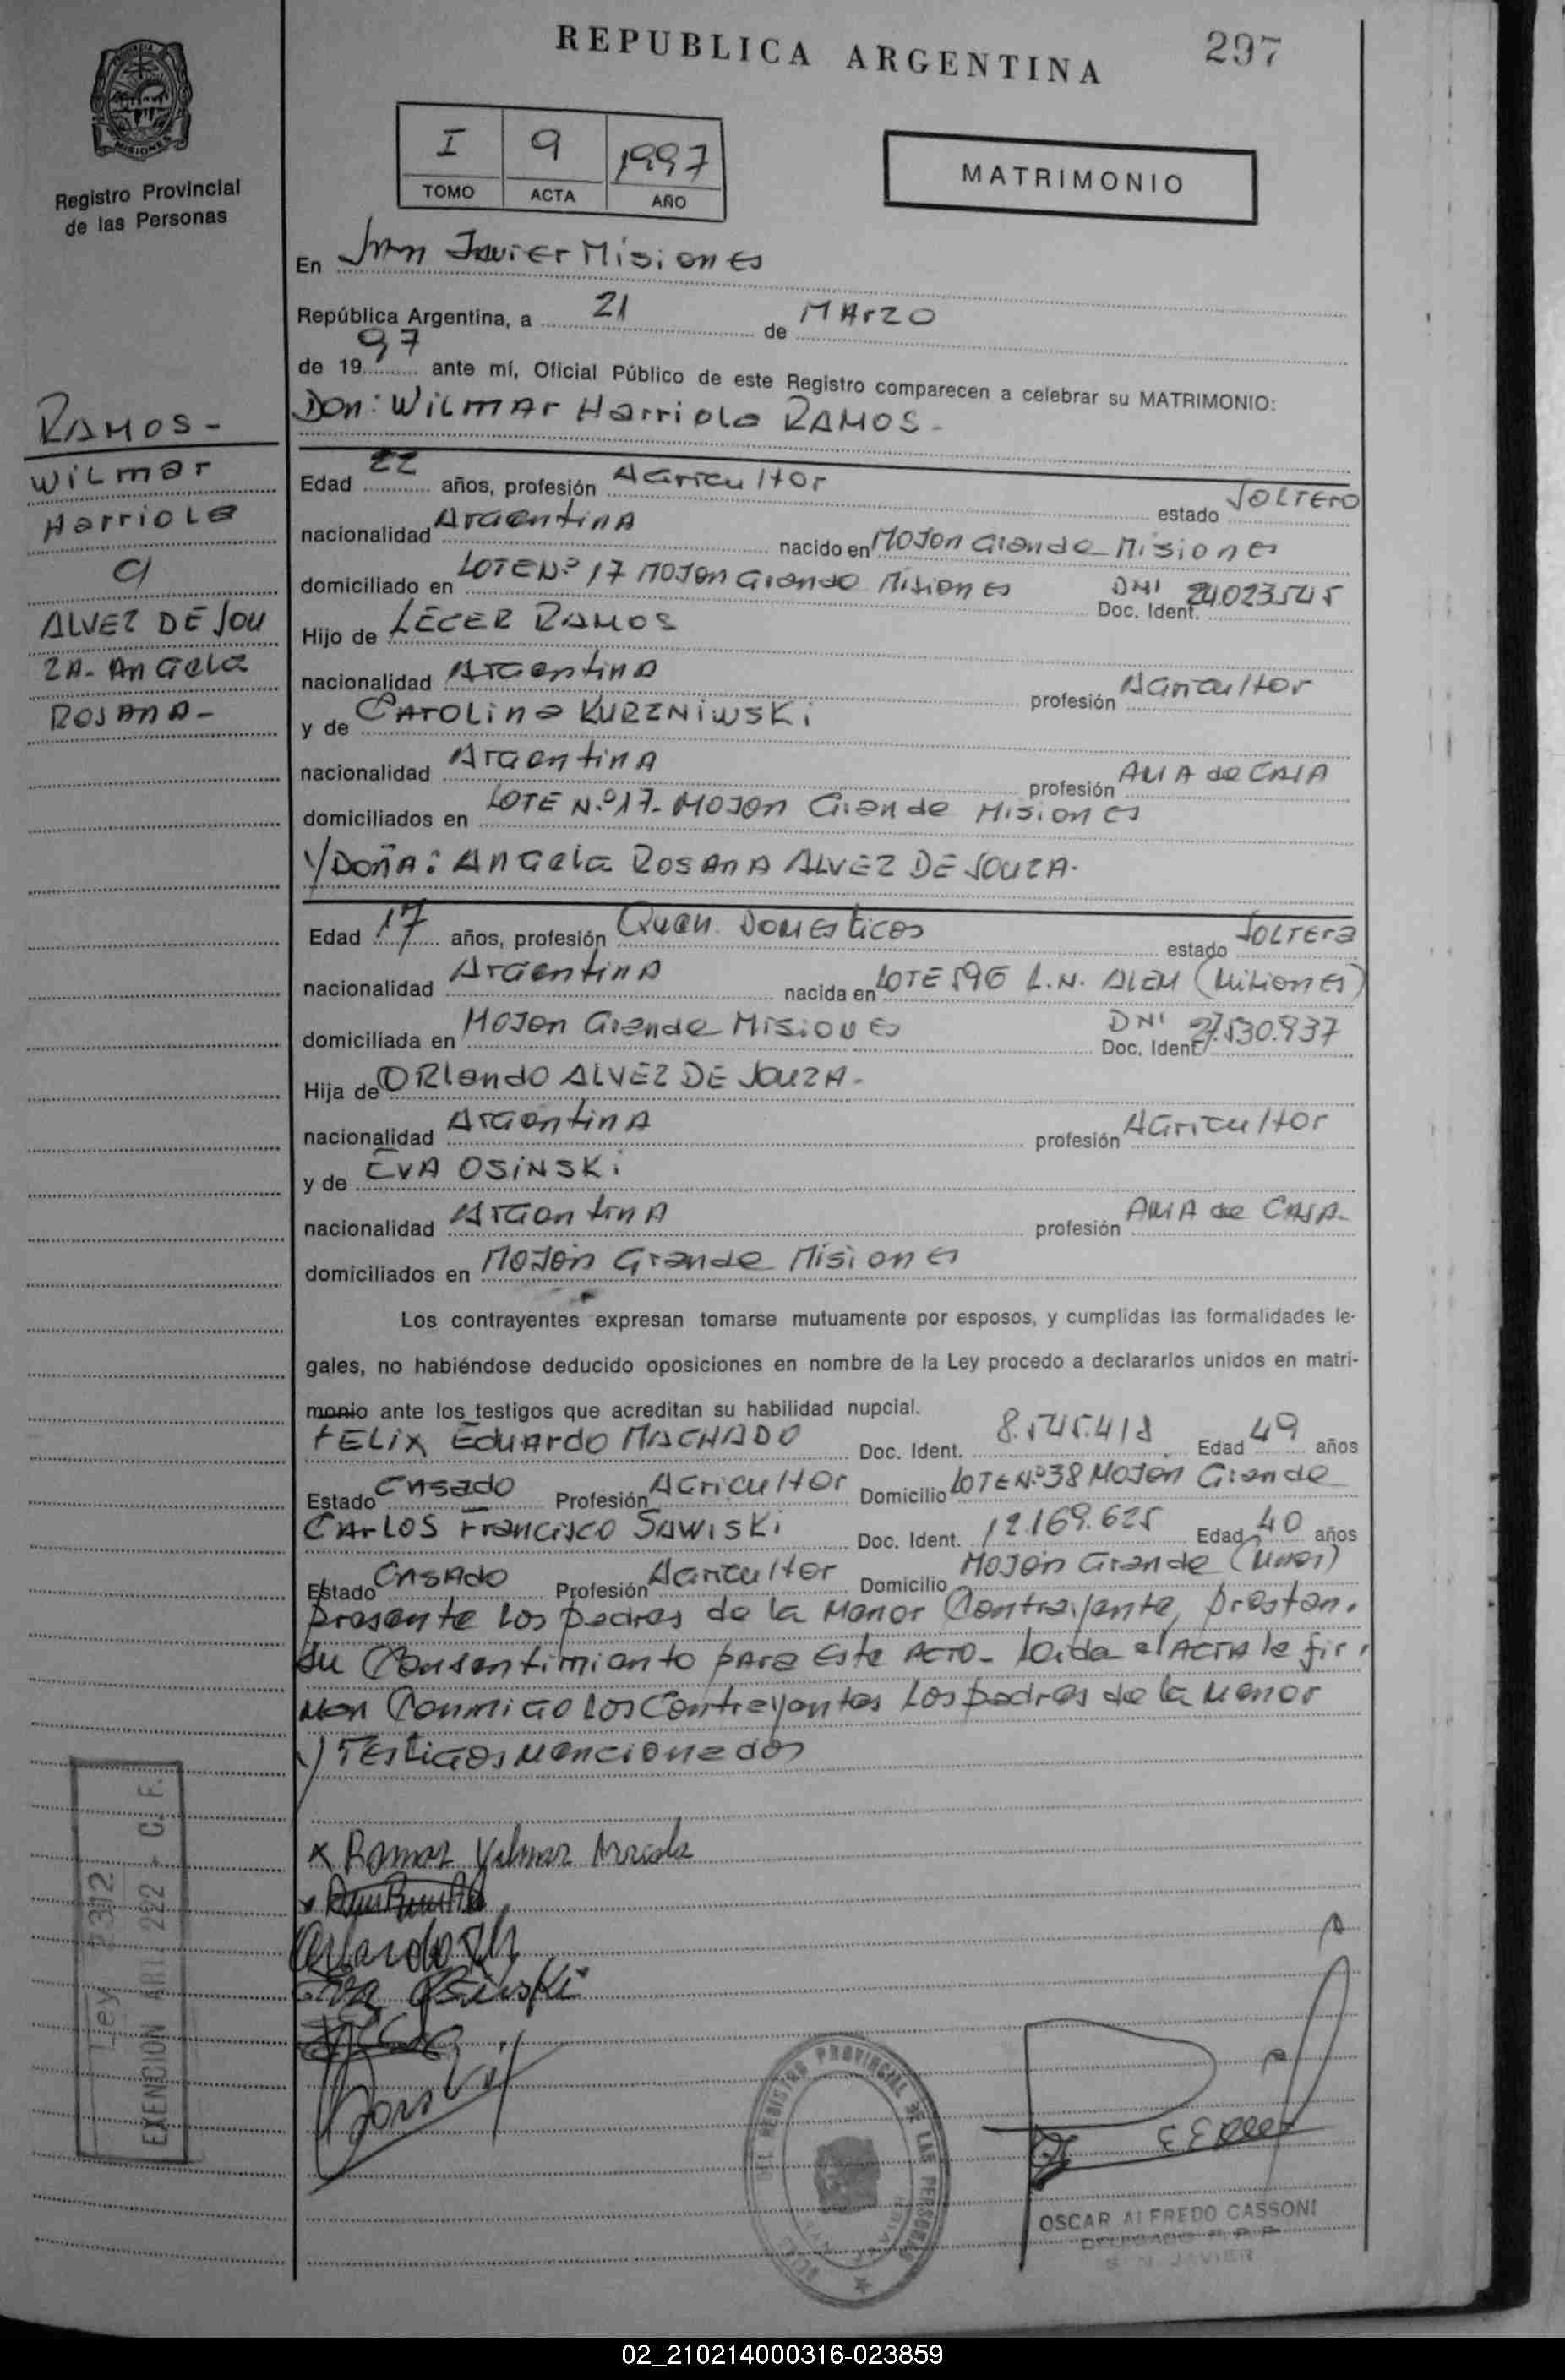 REPUBLICA ARGENTINA
297
MISIONES
Registro Provincial
de las Personas
I 9 1997
TOMO ACTA AÑO
MATRIMONIO
En San Javier Misiones
República Argentina, a 21 de MArzO
de 1997 ante mí, Oficial Público de este Registro comparecen a celebrar su MATRIMONIO:
Don: WiLmAr Harriola RAMOS-
RAMOS-
WiLmar
Harriola
C/
ALVEZ DE SOU
ZA- AnGela
ROSAnA-
Edad 22 años, profesión AGricultor estado SOLTErO
nacionalidad ArGentinA nacido en MOJon Grande Misiones
domiciliado en LOTE Nº 17 MOJon Grande Misiones DNI Doc. Ident. 24.023.545
Hijo de LECER RAMOS
nacionalidad ArGentinA profesión AGricultor
y de CArOLina KURZNiWSKi
nacionalidad ArGentinA profesión AMA de CASA
domiciliados en LOTE Nº 17- MOJon Grande Misiones
y DOñA: AnGela ROSAnA ALVEZ DE SOUZA-
Edad 17 años, profesión Quen. Domesticos estado SOLTEra
nacionalidad ArGentinA nacida en LOTE 596 L.N. ALEM (Misiones)
domiciliada en MOJon Grande Misiones DNI Doc. Ident. 27.530.937
Hija de ORLando ALVEZ DE SOUZA-
nacionalidad ArGentinA profesión AGricultor
y de EVA OSiNSKi
nacionalidad ArGentinA profesión AMA de CASA-
domiciliados en MOJón Grande Misiones
Los contrayentes expresan tomarse mutuamente por esposos, y cumplidas las formalidades le-
gales, no habiéndose deducido oposiciones en nombre de la Ley procedo a declararlos unidos en matri-
monio ante los testigos que acreditan su habilidad nupcial.
FELiX EduArdo MACHADO Doc. Ident. 8.545.418 Edad 49 años
Estado CAsado Profesión AGricultor Domicilio LOTE Nº 38 MOJón Grande
CArLOS Francisco SAWiSKi Doc. Ident. 12.169.625 Edad 40 años
Estado CAsAdo Profesión AGricultor Domicilio MOJón Grande (Mnes)
presente Los padres de la Menor Contrayente, prestan.
su Consentimiento pAra Este ACTO- Leida el ACTA le fir-
man ConmiGo LOS Contrayentes Los padres de la Menor
y TEstiGos Mencionados
x Ramos Yilmar Arriola
Orlando
Eva Osinski
Ley 2312
EXENCION ART. 222 - C.F.
DEL REGISTRO PROVINCIAL DE LAS PERSONAS
OSCAR ALFREDO CASSONI
DELEGADO R. P. P.
SAN JAVIER
02_210214000316-023859